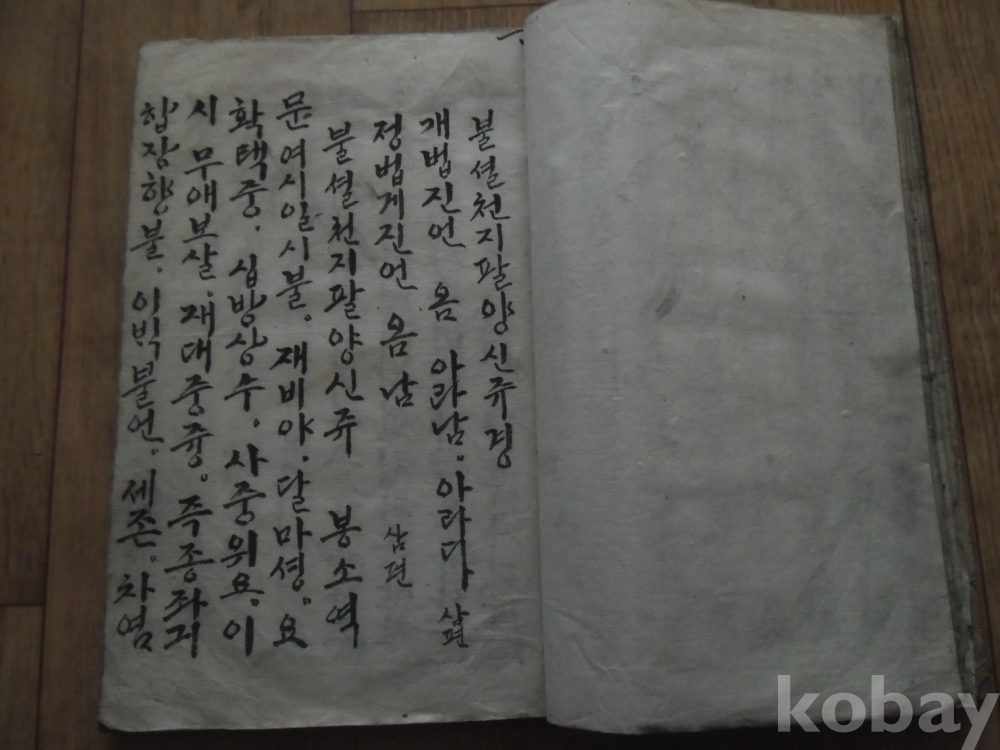 불셜천지팔양신쥬경
개법진언 옴 아라남。아라다 삼편
정법게진언 옴남 삼편
불셜천지팔양신쥬 봉소역
문여시일시불。재비야。달마셩。요
확택중。십방상수。사중위요。이
시 무애보살。재대중즁。즉종좌긔
합장향불。이빅불언。세존。차염
kobay